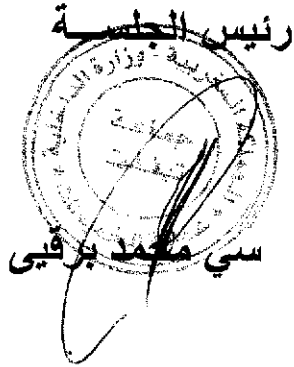 رئيس الجلسة
وزارة الداخلية
جماعة
سي محمد برقيى